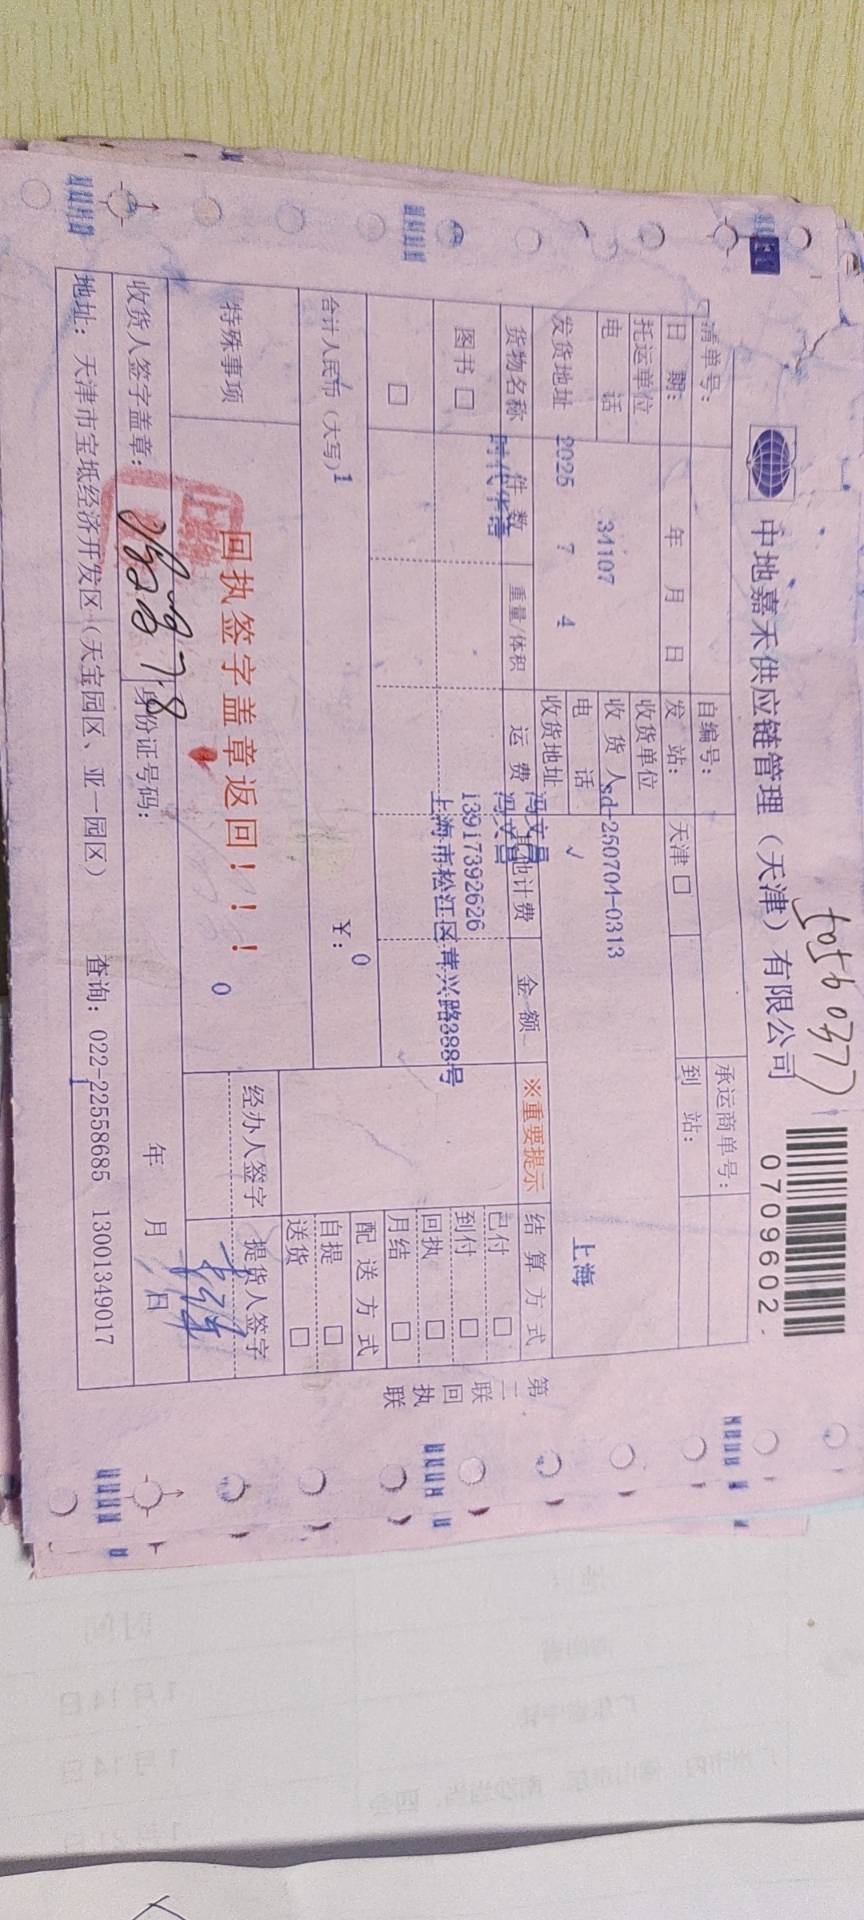 中地嘉禾供应链管理（天津）有限公司
0709602
清单号：
自编号：
承运商单号：
日 期： 年 月 日
发 站： 天津□
到 站：
托运单位
收货单位
电 话
34107
收 货 人
sd-250704-0313
上海
电 话
√
发货地址
2025 7 4
收货地址
冯文昌
货物名称
件 数
重量/体积
运 费
其他计费
金 额
※重要提示
结 算 方 式
时代华语
冯文昌
图书□
13917392626
已付 □
到付 □
上海市松江区茸兴路388号
回执 □
□
月结 □
配 送 方 式
合计人民币（大写）
1
￥：
0
自提 □
送货 □
特殊事项
回执签字盖章返回！！！
0
经办人签字
提货人签字
收货人签字盖章：
7.8
身份证号码：
年 月 日
地址：天津市宝坻经济开发区（天宝园区、亚一园区）
查询：022-22558685 13001349017
第二联 回执联